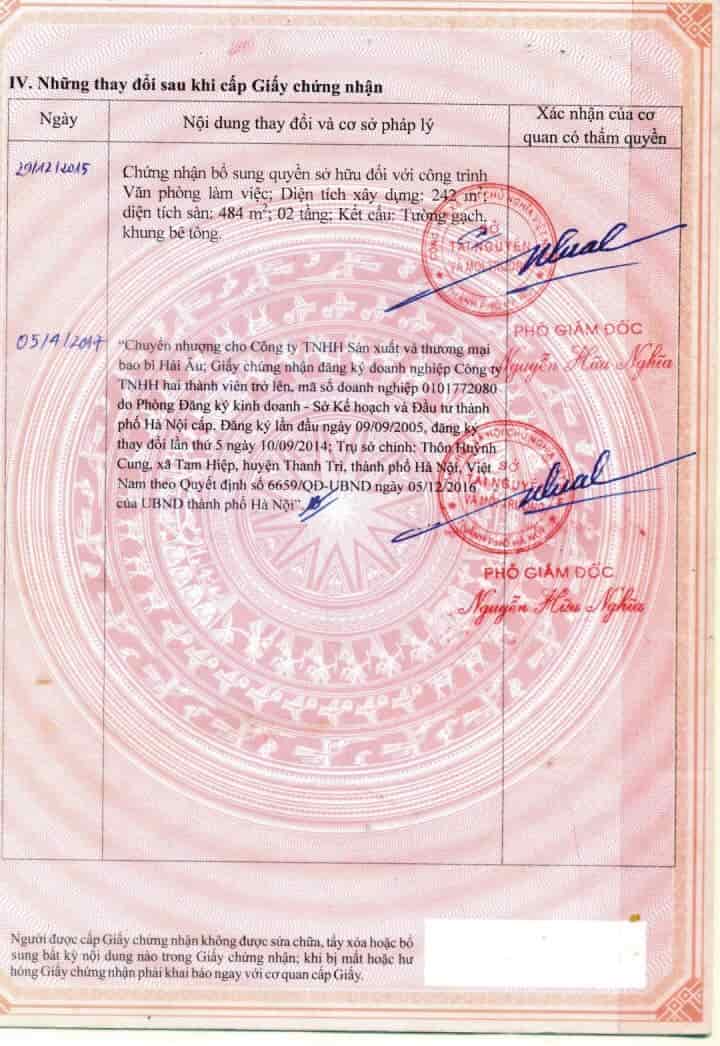 IV. Những thay đổi sau khi cấp Giấy chứng nhận
Ngày
Nội dung thay đổi và cơ sở pháp lý
Xác nhận của cơ
quan có thẩm quyền
29/12/2015
Chứng nhận bổ sung quyền sở hữu đối với công trình
Văn phòng làm việc; Diện tích xây dựng; 242 m²;
diện tích sàn; 484 m²; 02 tầng; Kết cấu: Tường gạch,
khung bê tông.
SỞ
TÀI NGUYÊN
VÀ MÔI TRƯỜNG
THÀNH PHỐ HÀ NỘI
PHÓ GIÁM ĐỐC
Nguyễn Hữu Nghĩa
05/4/2017
“Chuyển nhượng cho Công ty TNHH Sản xuất và thương mại
bao bì Hải Âu; Giấy chứng nhận đăng ký doanh nghiệp Công ty
TNHH hai thành viên trở lên, mã số doanh nghiệp 0101772080
do Phòng Đăng ký kinh doanh - Sở Kế hoạch và Đầu tư thành
phố Hà Nội cấp. Đăng ký lần đầu ngày 09/09/2005, đăng ký
thay đổi lần thứ 5 ngày 10/09/2014; Trụ sở chính: Thôn Huỳnh
Cung, xã Tam Hiệp, huyện Thanh Trì, thành phố Hà Nội, Việt
Nam theo Quyết định số 6659/QĐ-UBND ngày 05/12/2016
của UBND thành phố Hà Nội”
SỞ
TÀI NGUYÊN
VÀ MÔI TRƯỜNG
THÀNH PHỐ HÀ NỘI
PHÓ GIÁM ĐỐC
Nguyễn Hữu Nghĩa
Người được cấp Giấy chứng nhận không được sửa chữa, tẩy xóa hoặc bổ
sung bất kỳ nội dung nào trong Giấy chứng nhận; khi bị mất hoặc hư
hỏng Giấy chứng nhận phải khai báo ngay với cơ quan cấp Giấy.